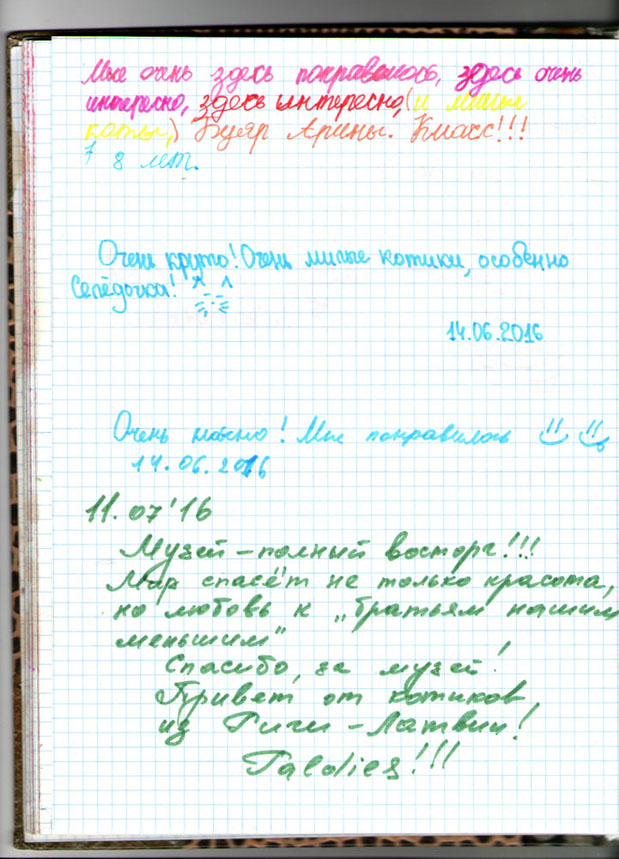 Мне очень здесь понравилось, здесь очень
интересно, здесь интересно, (и милые
коты,) Арины. Класс!!!
8 лет.
Очень круто! Очень милые котики, особенно
Селёдочка!
14.06.2016
Очень классно! Мне понравилось
14.06.2016
11.07'16
Музей – полный восторг!!!
Мир спасёт не только красота,
но любовь к „братьям нашим
меньшим"
Спасибо, за музей!
Привет от котиков
из Риги – Латвии!
Paldies!!!